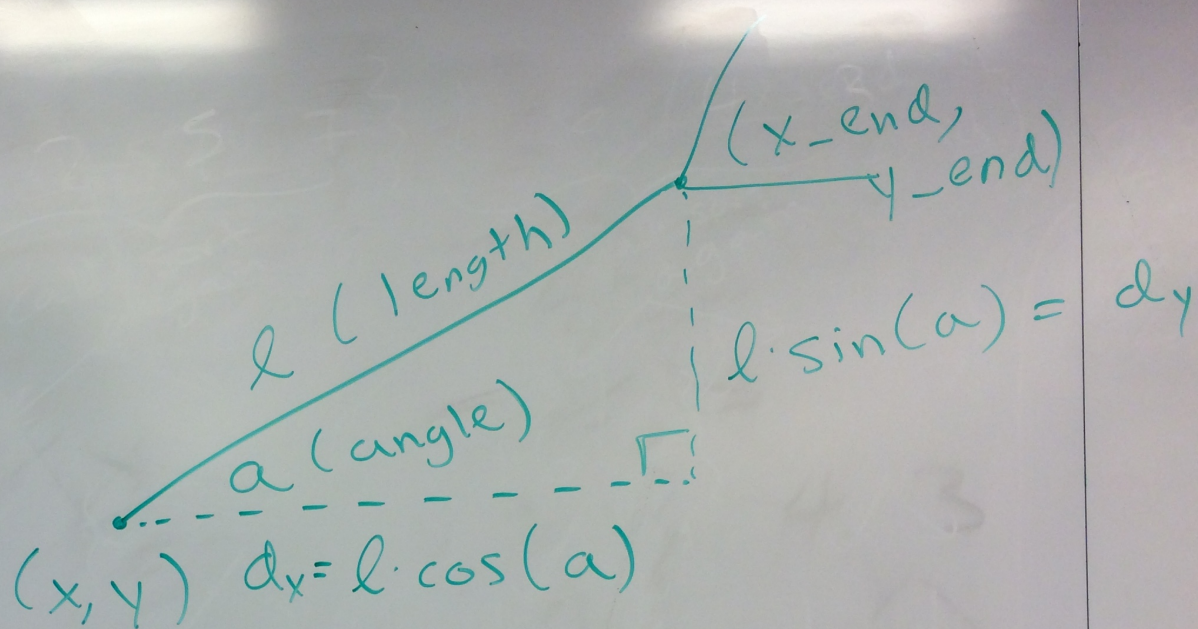 (x_end,
y_end)
l (length)
l·sin(a) = dy
a (angle)
(x,y)
dx= l·cos(a)